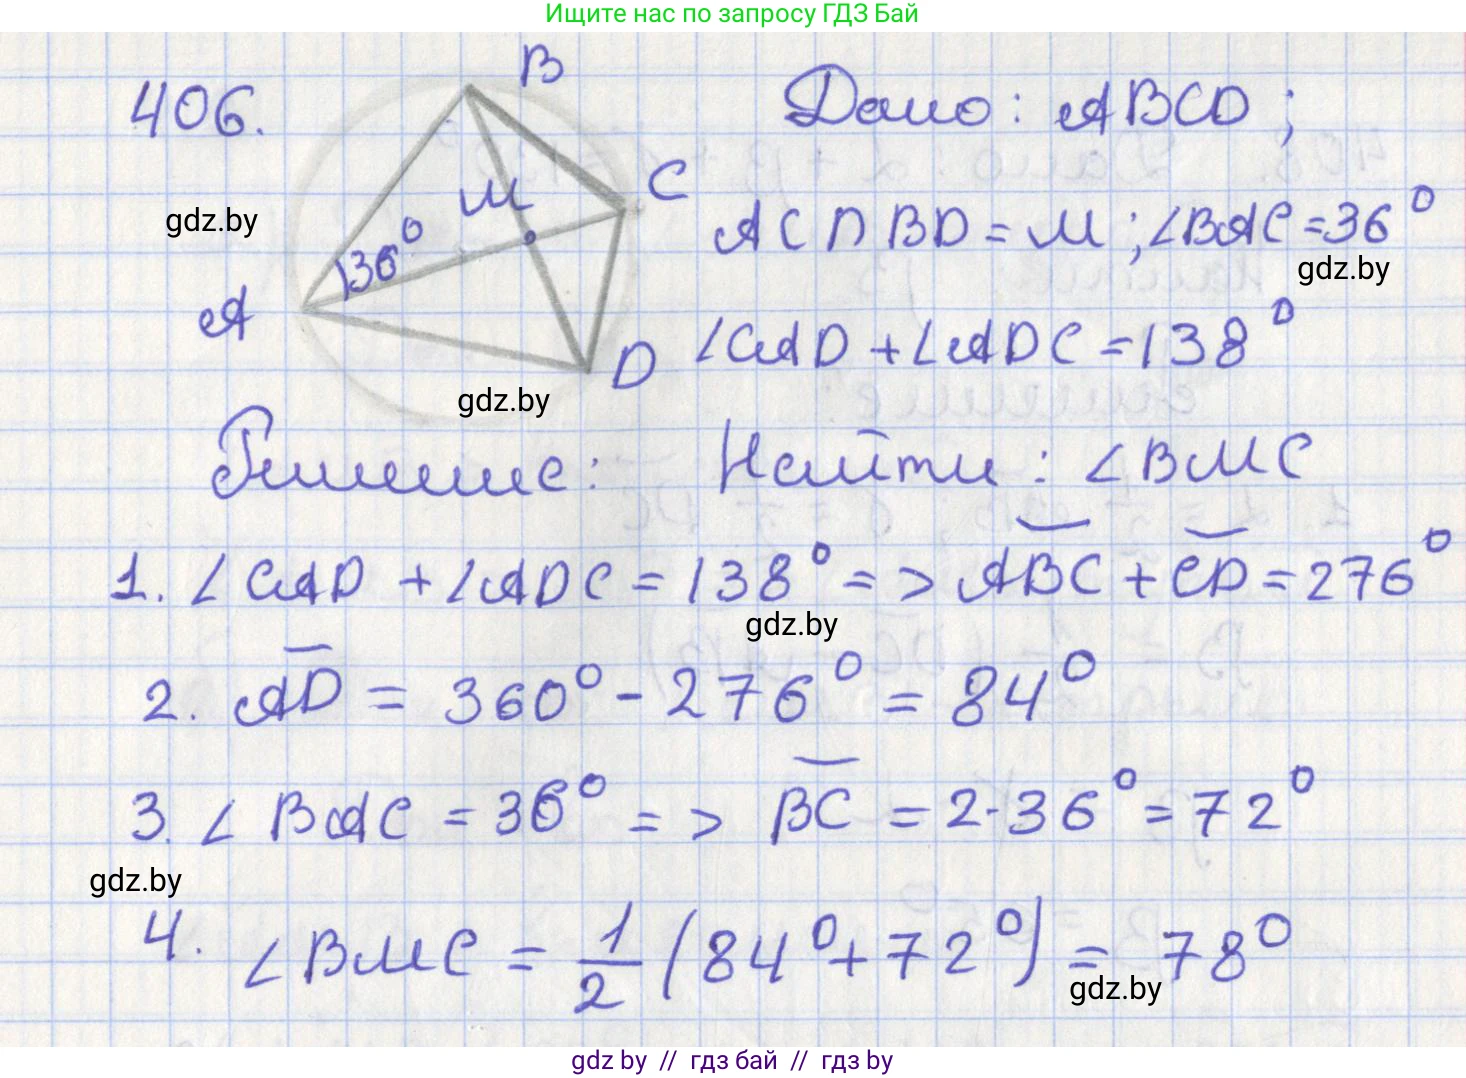 Ищите нас по запросу ГДЗ Бай
406.
B
Дано: ABCD;
C
M
gdz.by
AC ∩ BD = M; ∠BAC = 36°
36°
gdz.by
A
∠CAD + ∠ADC = 138°
D
gdz.by
Решение:
Найти: ∠BMC
1. ∠CAD + ∠ADC = 138° => ABC + CD = 276°
gdz.by
2. AD = 360° - 276° = 84°
3. ∠BAC = 36° => BC = 2·36° = 72°
gdz.by
4. ∠BMC = 1/2 (84° + 72°) = 78°
gdz.by
gdz by // гдз бай // гдз by